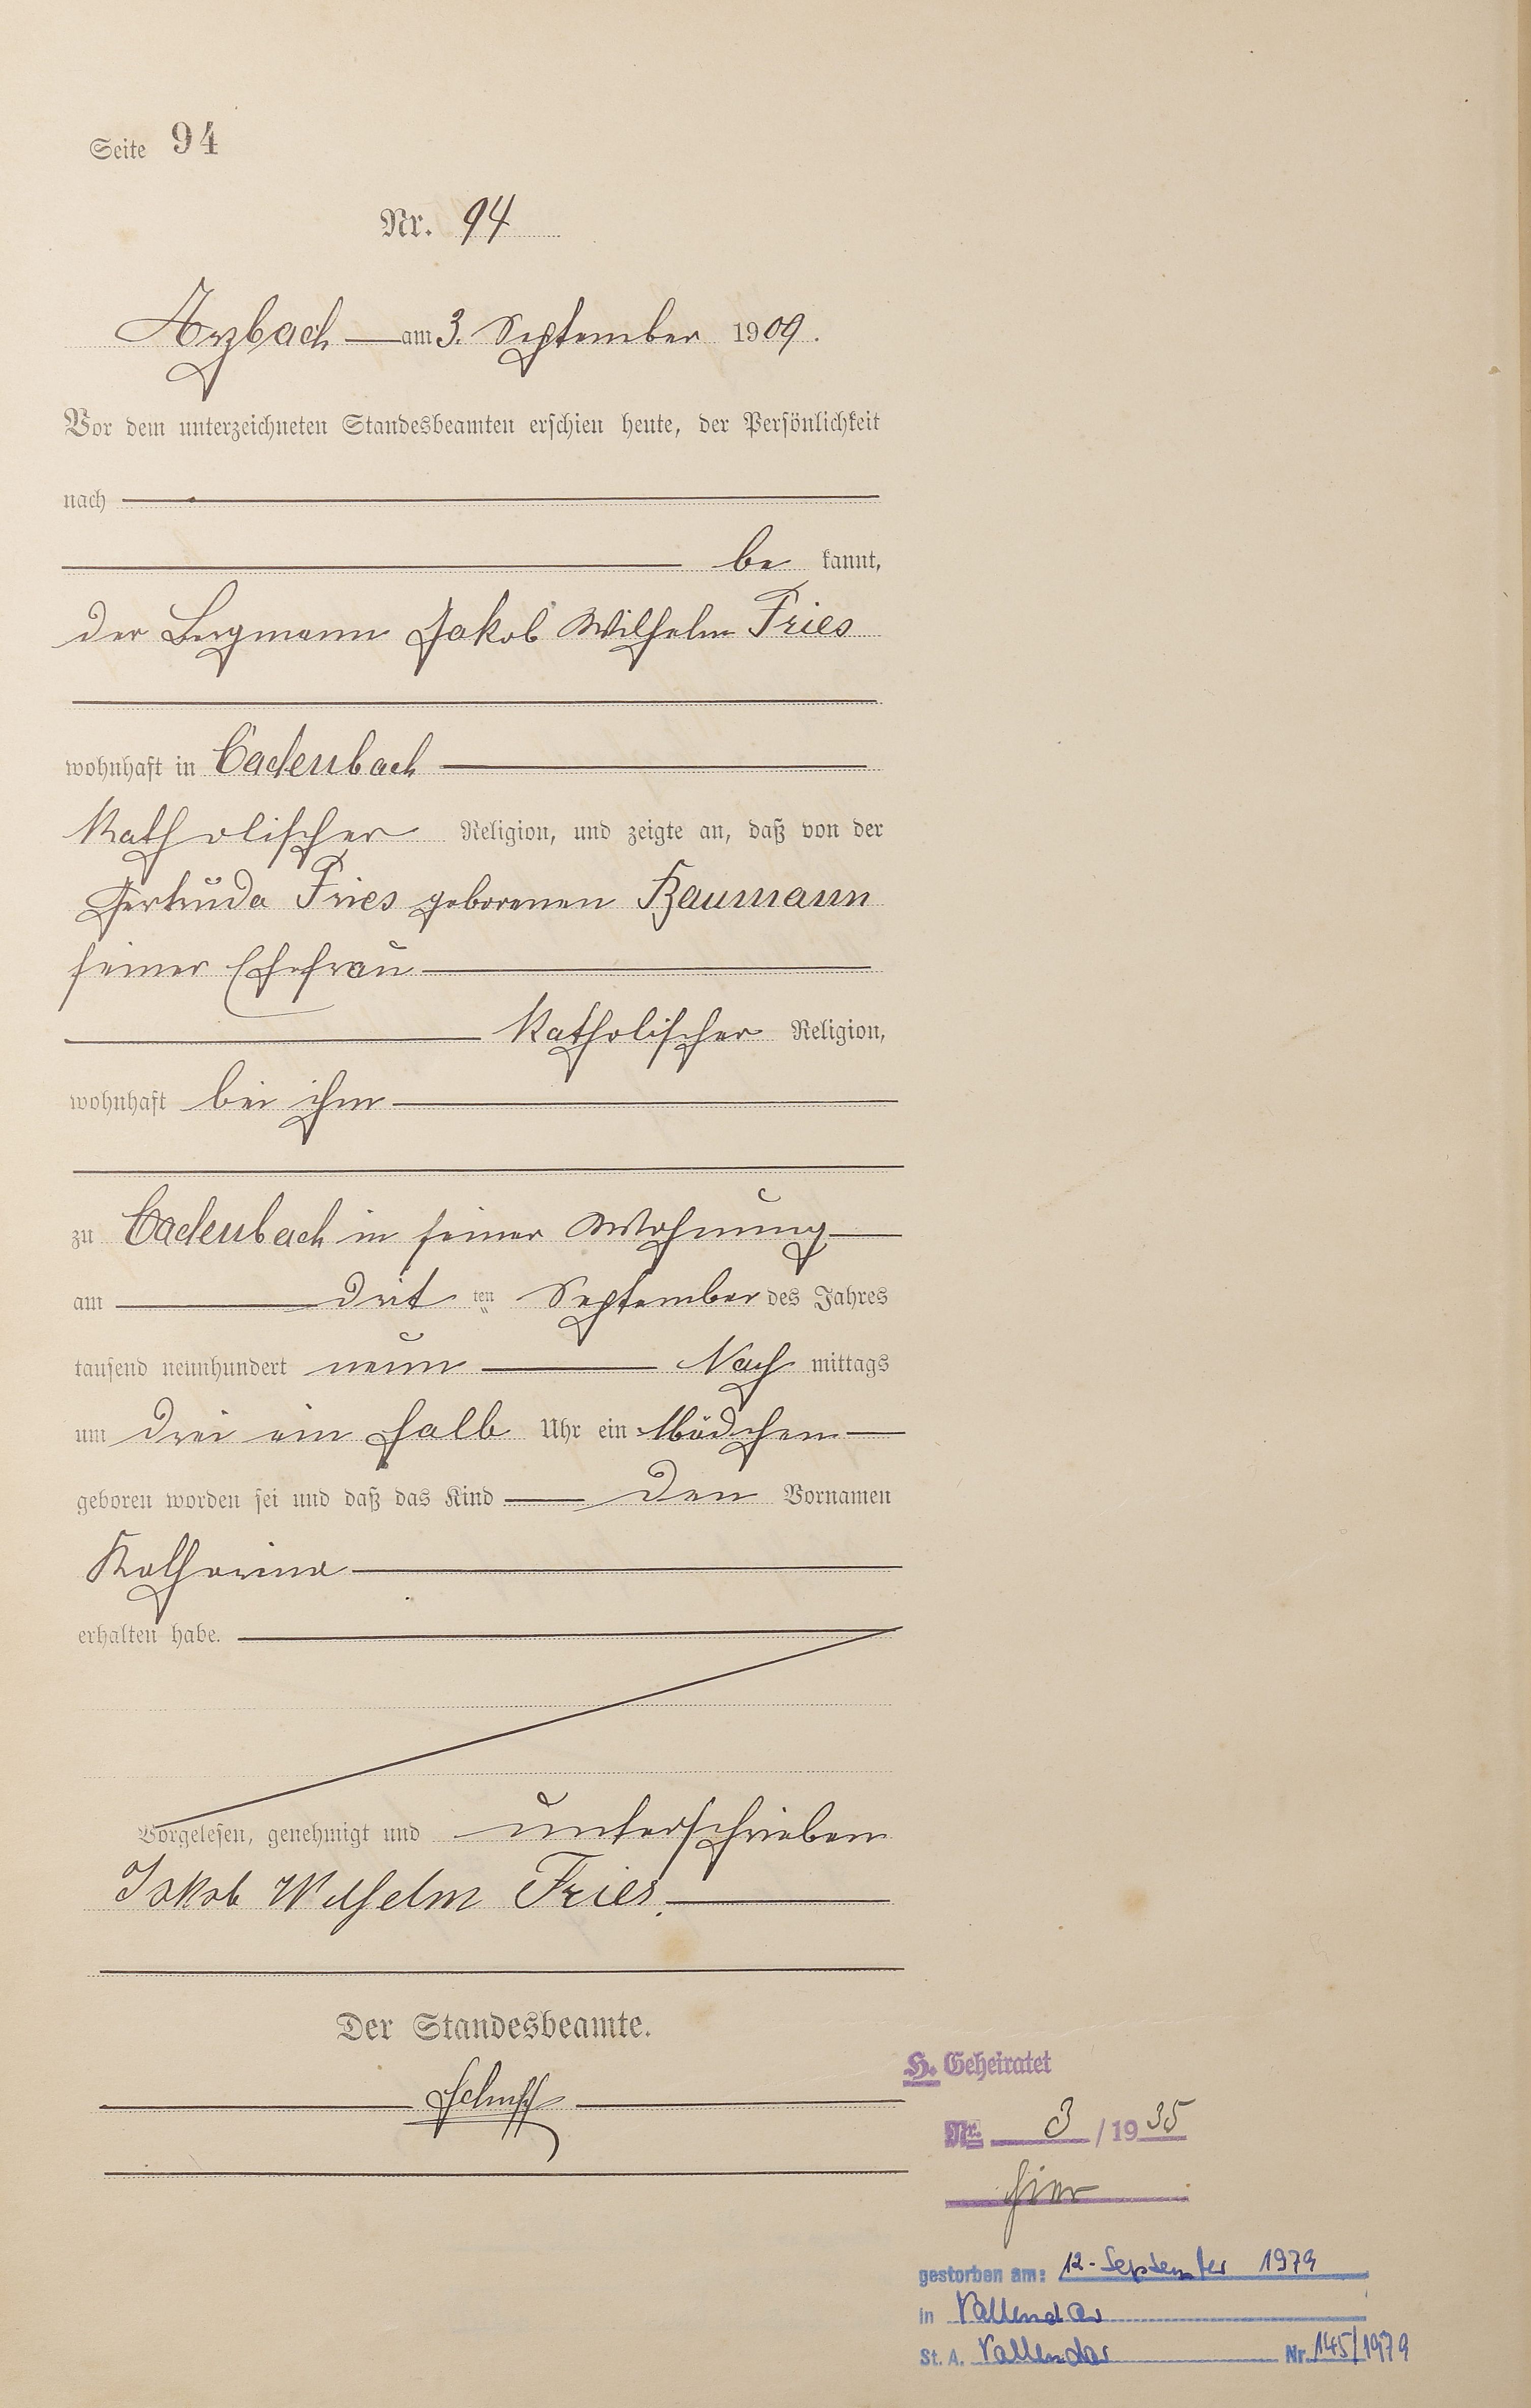 Seite 94
Nr. 94
Arzbach am 3. September 1909.
Vor dem unterzeichneten Standesbeamten erschien heute, der Persönlichkeit
nach
be kannt,
der Bergmann Jakob Wilhelm Fries
wohnhaft in Cadenbach
katholischer Religion, und zeigte an, daß von der
Gertruda Fries geborenen Baumann
seiner Ehefrau
katholischer Religion,
wohnhaft bei ihm
zu Cadenbach in seiner Wohnung
am drit ten September des Jahres
tausend neunhundert neun Nach mittags
um drei ein halb Uhr ein Mädchen
geboren worden sei und daß das Kind den Vornamen
Katharina
erhalten habe.
Vorgelesen, genehmigt und unterschrieben
Jakob Wilhelm Fries.
Der Standesbeamte.
H. Geheiratet
Nr. 3 / 1935
hier
gestorben am: 12. September 1979
in Vallendar
St. A. Vallendar Nr. 145/1979